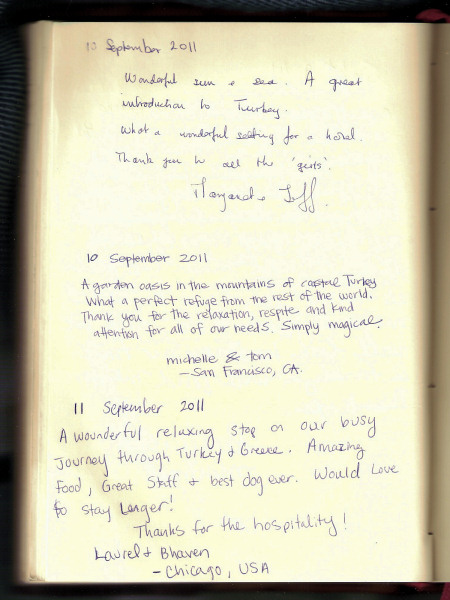 10 September 2011
Wonderful sun & sea. A great
introduction to Turkey.
What a wonderful setting for a hotel.
Thank you to all the 'girls'.
Margaret & Jeff.
10 September 2011
A garden oasis in the mountains of coastal Turkey
What a perfect refuge from the rest of the world.
Thank you for the relaxation, respite and kind
attention for all of our needs. Simply magical.
michelle & tom
- San Francisco, CA.
11 September 2011
A wounderful relaxing stop on our busy
Journey through Turkey & Greece. Amazing
food, Great Staff & best dog ever. Would Love
to stay Longer!
Thanks for the hospitality!
Laurel & Bhaven
- Chicago, USA